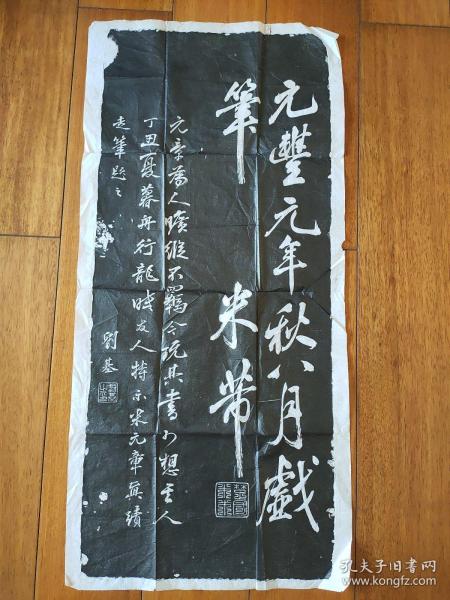 元豐元年秋八月戲
筆 米芾
元章為人曠縱不羈今玩其書可想其人
丁丑夏暮舟行龍 友人持示米元章真蹟
走筆題之 劉基
孔夫子旧书网
www.kongfz.com